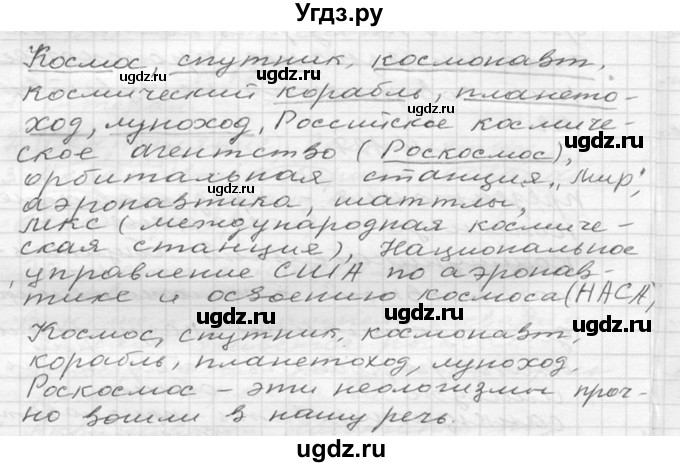 Угдз.ру
Космос, спутник, космонавт,
космический корабль, плането-
ход, луноход, Российское космиче-
ское агентство (Роскосмос),
орбитальная станция „Мир",
аэронавтика, шаттлы,
МКС (международная космиче-
ская станция), Национальное
управление США по аэронав-
тике и освоению космоса (НАСА)
Космос, спутник, космонавт,
корабль, планетоход, луноход,
Роскосмос – эти неологизмы проч-
но вошли в нашу речь.
ugdz.ru
ugdz.ru
ugdz.ru
ugdz.ru
ugdz.ru
ugdz.ru
ugdz.ru
ugdz.ru
ugdz.ru
ugdz.ru
ugdz.ru
ugdz.ru